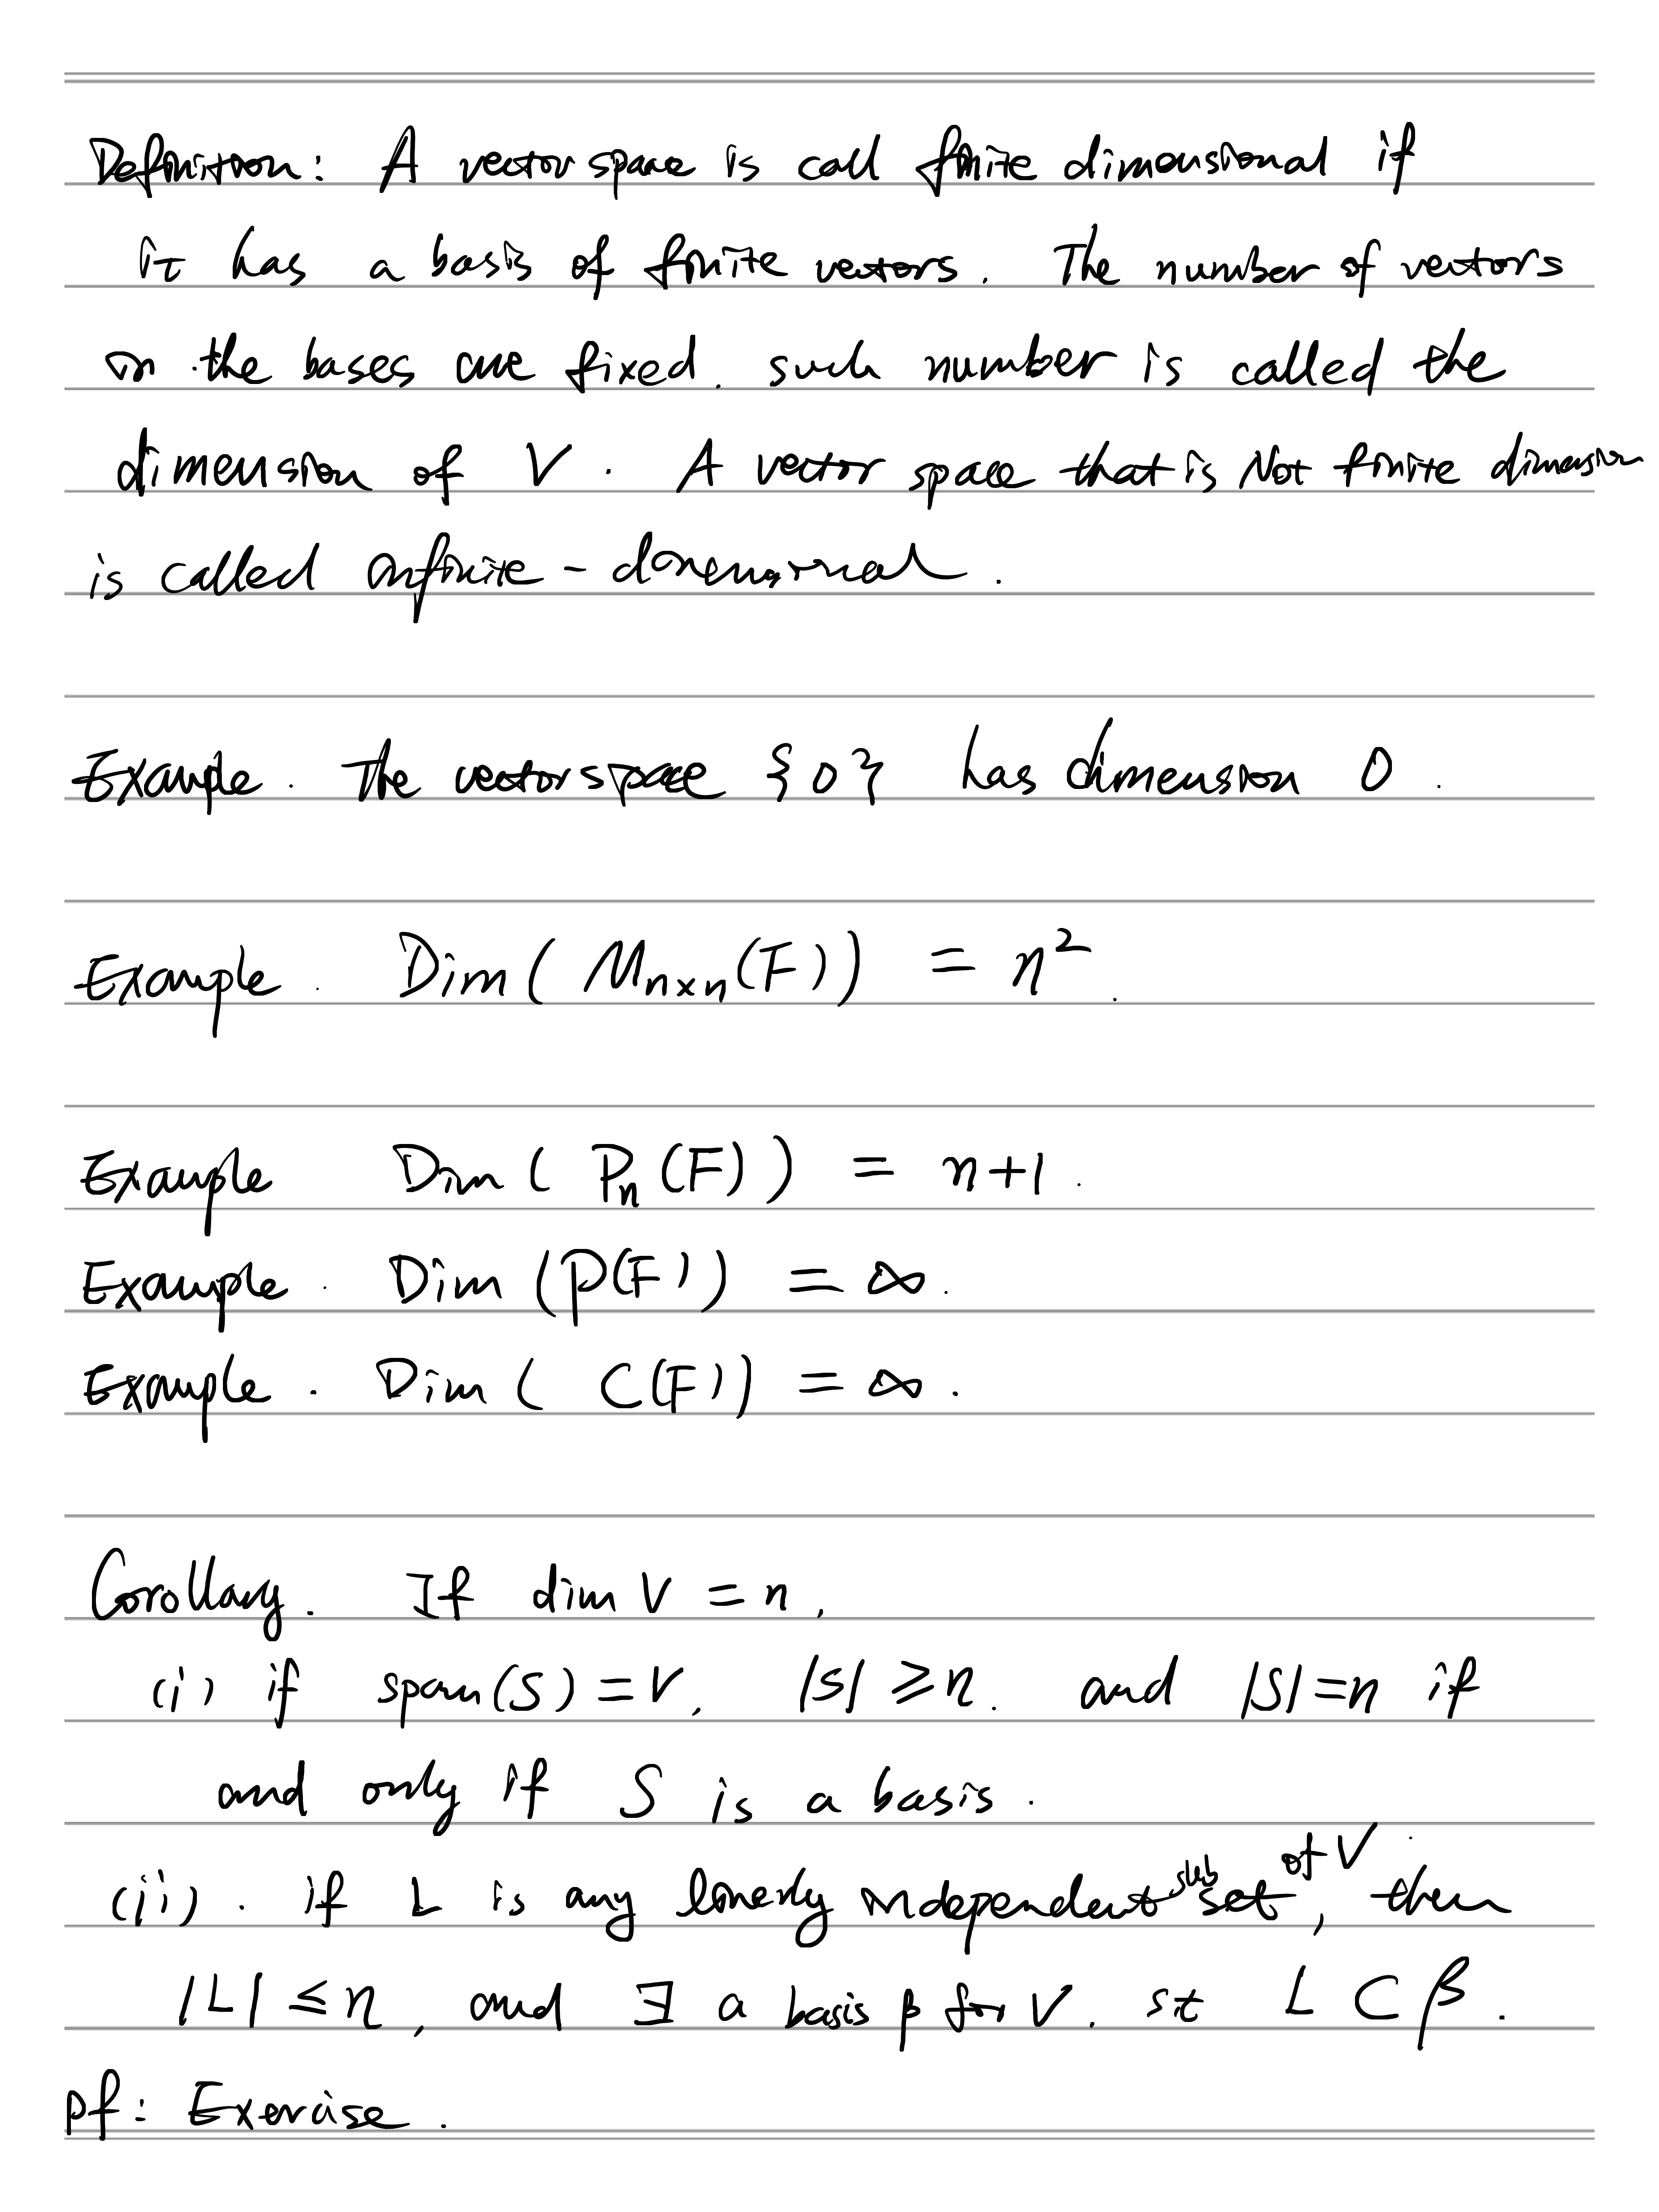 Definition: A vector space is call finite dimensional if
it has a basis of finite vectors. The number of vectors
in the bases are fixed. such number is called the
dimension of V. A vector space that is Not finite dimension
is called infinite-dimensional.
Example. The vector space {0} has dimension 0.
Example. Dim(Mₙₓₙ(F)) = n².
Example Dim(Pₙ(F)) = n+1.
Example. Dim(P(F)) = ∞.
Example. Dim(C(F)) = ∞.
Corollary. If dim V = n,
(i) if span(S) = V, |S| ≥ n. and |S|=n if
and only if S is a basis.
(ii). if L is any linerly independent subset of V, then
|L| ≤ n, and ∃ a basis β for V. st L ⊂ β.
pf: Exercise.